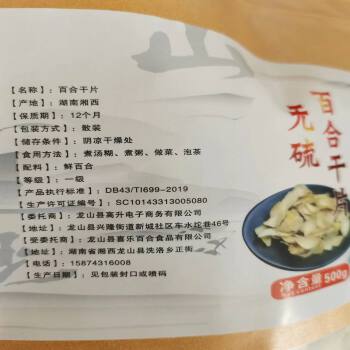 【名称】：百合干片
【产地】：湖南湘西
【保质期】：12个月
【包装方式】：散装
【储存条件】：阴凉干燥处
【食用方法】：煮汤粥、煮粥、做菜、泡茶
【配料】：鲜百合
【等级】：一级
【产品执行标准】：DB43/TI699-2019
【生产许可证编号】：SC10143313005080
【委托商】：龙山县高升电子商务有限公司
【地址】：龙山县兴隆街道新城社区车水坨巷46号
【受委托商】：龙山县喜乐百合食品有限公司
【地址】：湖南省湘西龙山县洗洛乡正街
【电话】：15874316008
【生产日期】：见包装封口或喷码
无硫
百合干片
净含量
500g